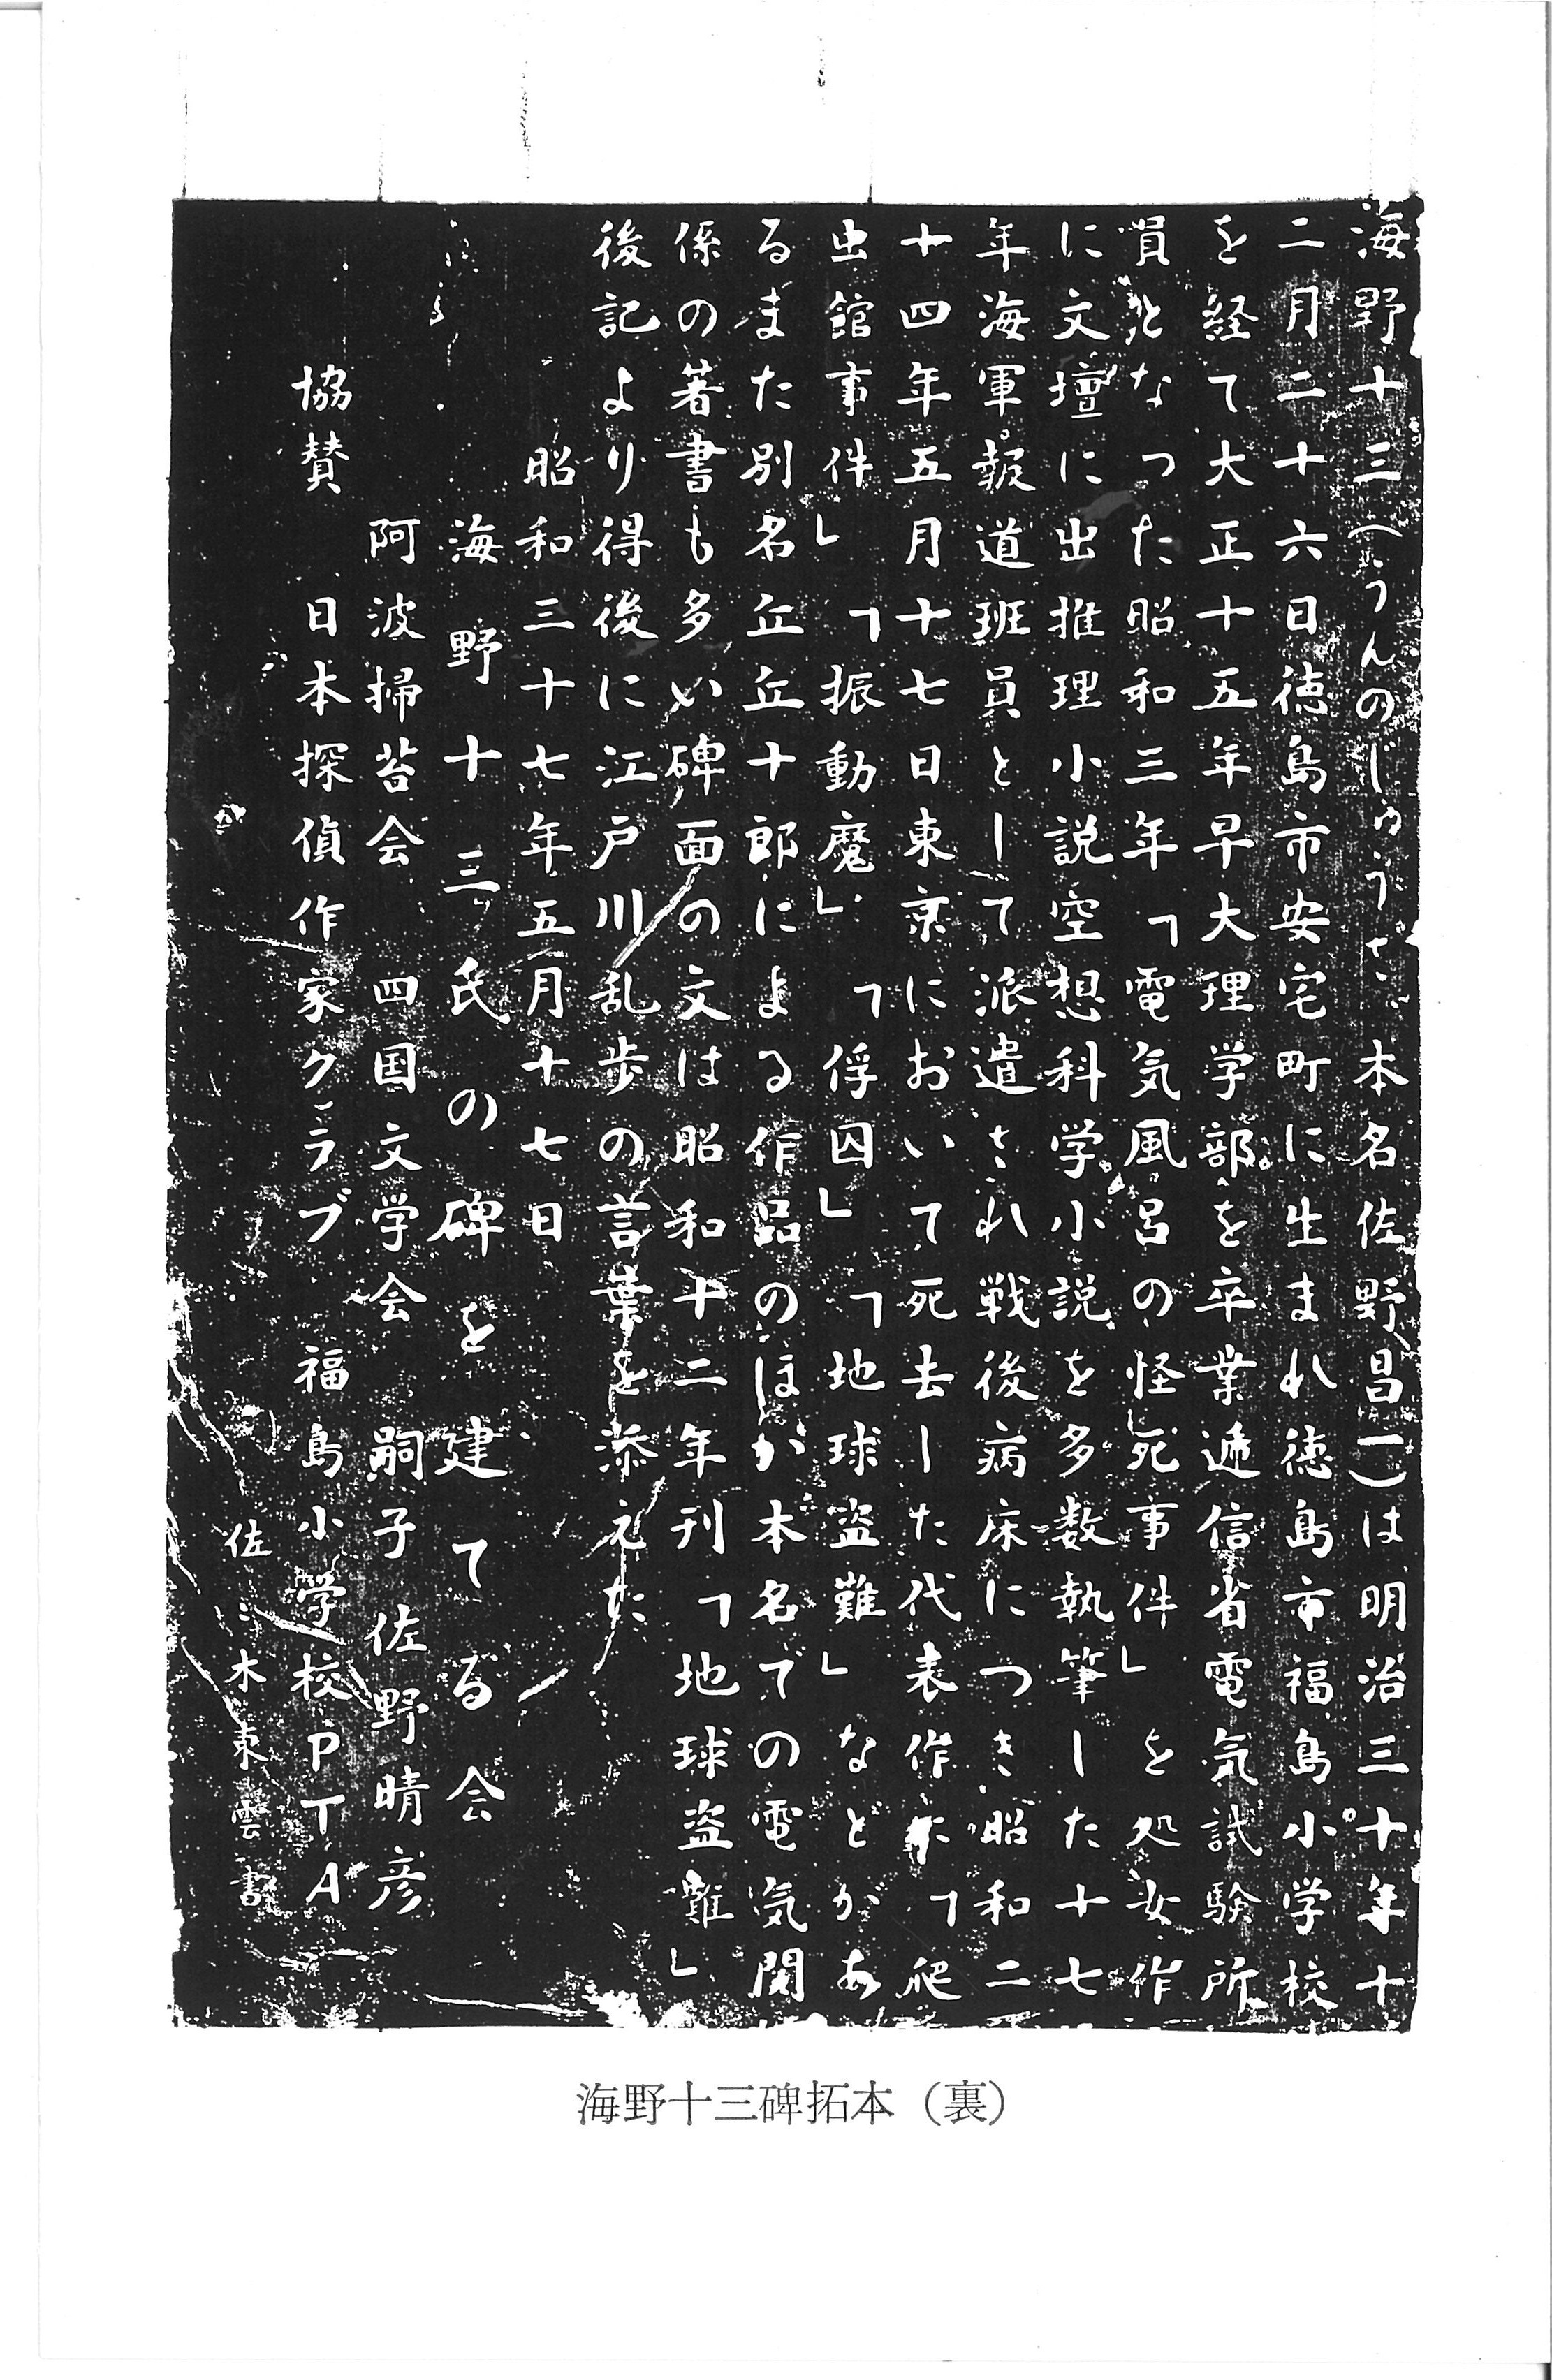 海野十三(うんのじゅうざ 本名佐野昌一)は明治三十年十
二月二十六日徳島市安宅町に生まれ徳島市福島小学校
を経て大正十五年早大理学部を卒業逓信省電気試験所
員となった昭和三年「電気風呂の怪死事件」を処女作
に文壇に出推理小説空想科学小説を多数執筆した十七
年海軍報道班員として派遣され戦後病床につき昭和二
十四年五月十七日東京において死去した代表作に「爬
虫館事件」「振動魔」「俘囚」「地球盗難」などがあ
るまた別名丘丘十郎による作品のほが本名での電気関
係の著書も多い碑面の文は昭和十二年刊「地球盗難」
後記より得後に江戸川乱歩の言葉を添えた
昭和三十七年五月十七日
海野十三氏の碑を建てる会
阿波掃苔会 四国文学会 嗣子佐野晴彦
協賛 日本探偵作家クラブ 福島小学校PTA
佐々木東雲書
海野十三碑拓本（裏）